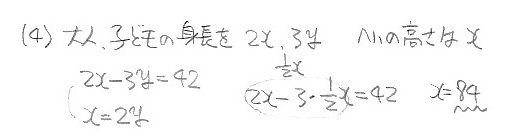 (4) 大人、子どもの身長を 2x, 3y 八の高さは x
2x-3y=42
x=2y
½x
2x-3・½x=42 x=84